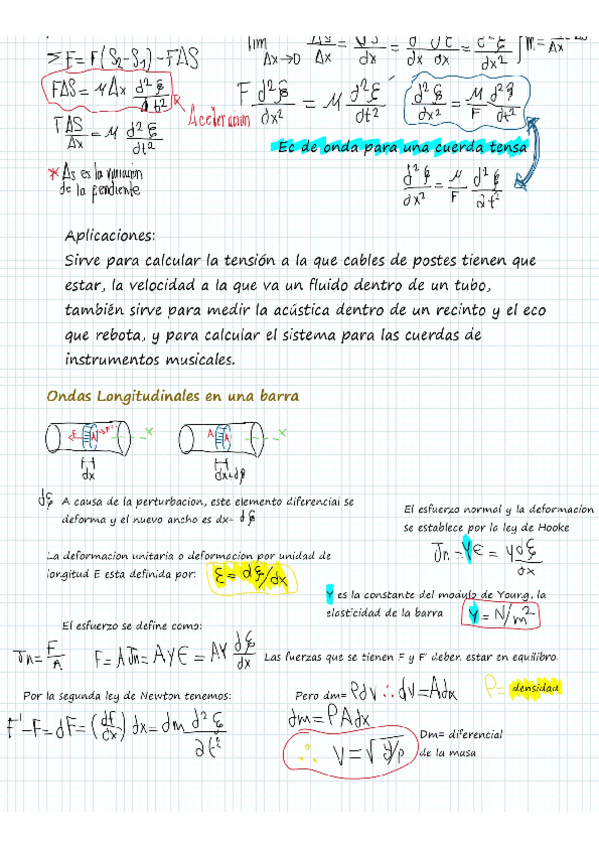 ΣF = F(S2-S1) - FΔS
lim Δx→0 ΔS/Δx = dS/dx = d/dx dξ/dx = d²ξ/dx²
FΔS = μΔx d²ξ/dt²
Aceleracion
F d²ξ/dx² = μ d²ξ/dt²
d²ξ/dx² = μ/F d²ξ/dt²
FΔS/Δx = μ d²ξ/dt²
Ec de onda para una cuerda tensa
* Δs es la variacion
de la pendiente
d²ξ/dx² = μ/F d²ξ/dt²
Aplicaciones:
Sirve para calcular la tensión a la que cables de postes tienen que
estar, la velocidad a la que va un fluido dentro de un tubo,
también sirve para medir la acústica dentro de un recinto y el eco
que rebota, y para calcular el sistema para las cuerdas de
instrumentos musicales.
Ondas Longitudinales en una barra
F A F' x
A A' x
dx
dx+dξ
dξ A causa de la perturbacion, este elemento diferencial se
deforma y el nuevo ancho es dx- dξ
El esfuerzo normal y la deformacion
se establece por la ley de Hooke
Jn = Yε = Ydξ/dx
La deformacion unitaria o deformacion por unidad de
longitud E esta definida por: ε = dξ/dx
Y es la constante del modulo de Young, la
elasticidad de la barra Y = N/m²
El esfuerzo se define como:
Jn = F/A F = AJn = AYε = AY dξ/dx Las fuerzas que se tienen F y F' deben estar en equilibrio.
Por la segunda ley de Newton tenemos: Pero dm= ρdv ∴ dv = Adx ρ= densidad
F' - F = dF = (df/dx) dx = dm d²ξ/dt²
dm = ρAdx
Dm= diferencial
de la masa
∴ V = √y/ρ